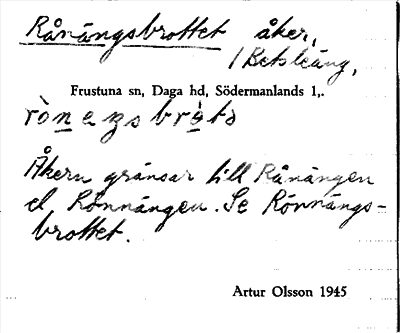 Rånängsbrottet åker,
i Betsleäng,
Frustuna sn, Daga hd, Södermanlands l,.
Åkern gränsar till Rånängen
el. Rönnängen. Se Rönnängs-
brottet.
Artur Olsson 1945